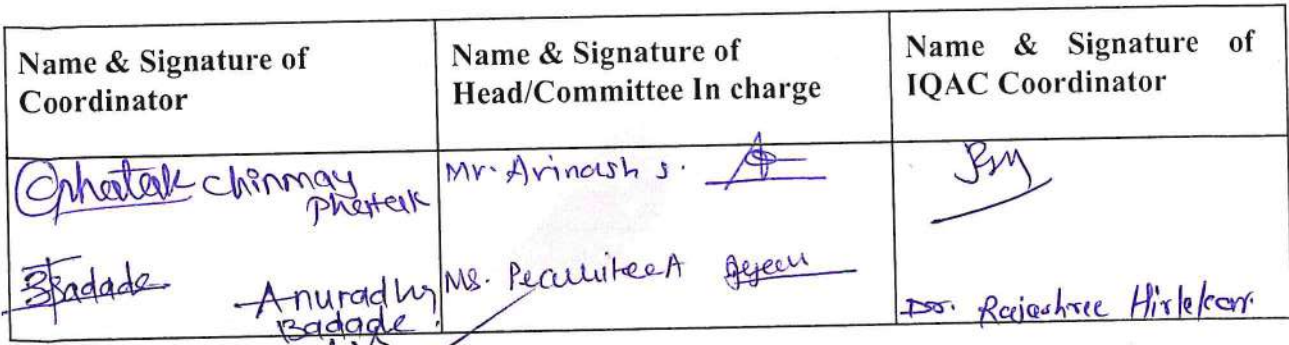 Name & Signature of
Coordinator
Name & Signature of
Head/Committee In charge
Name & Signature of
IQAC Coordinator
Phatak Chinmay
Phatak
Mr. Avinash S.
Badade Anuradha
Badade
Ms.
Dr. Rajashree Hirlekar.